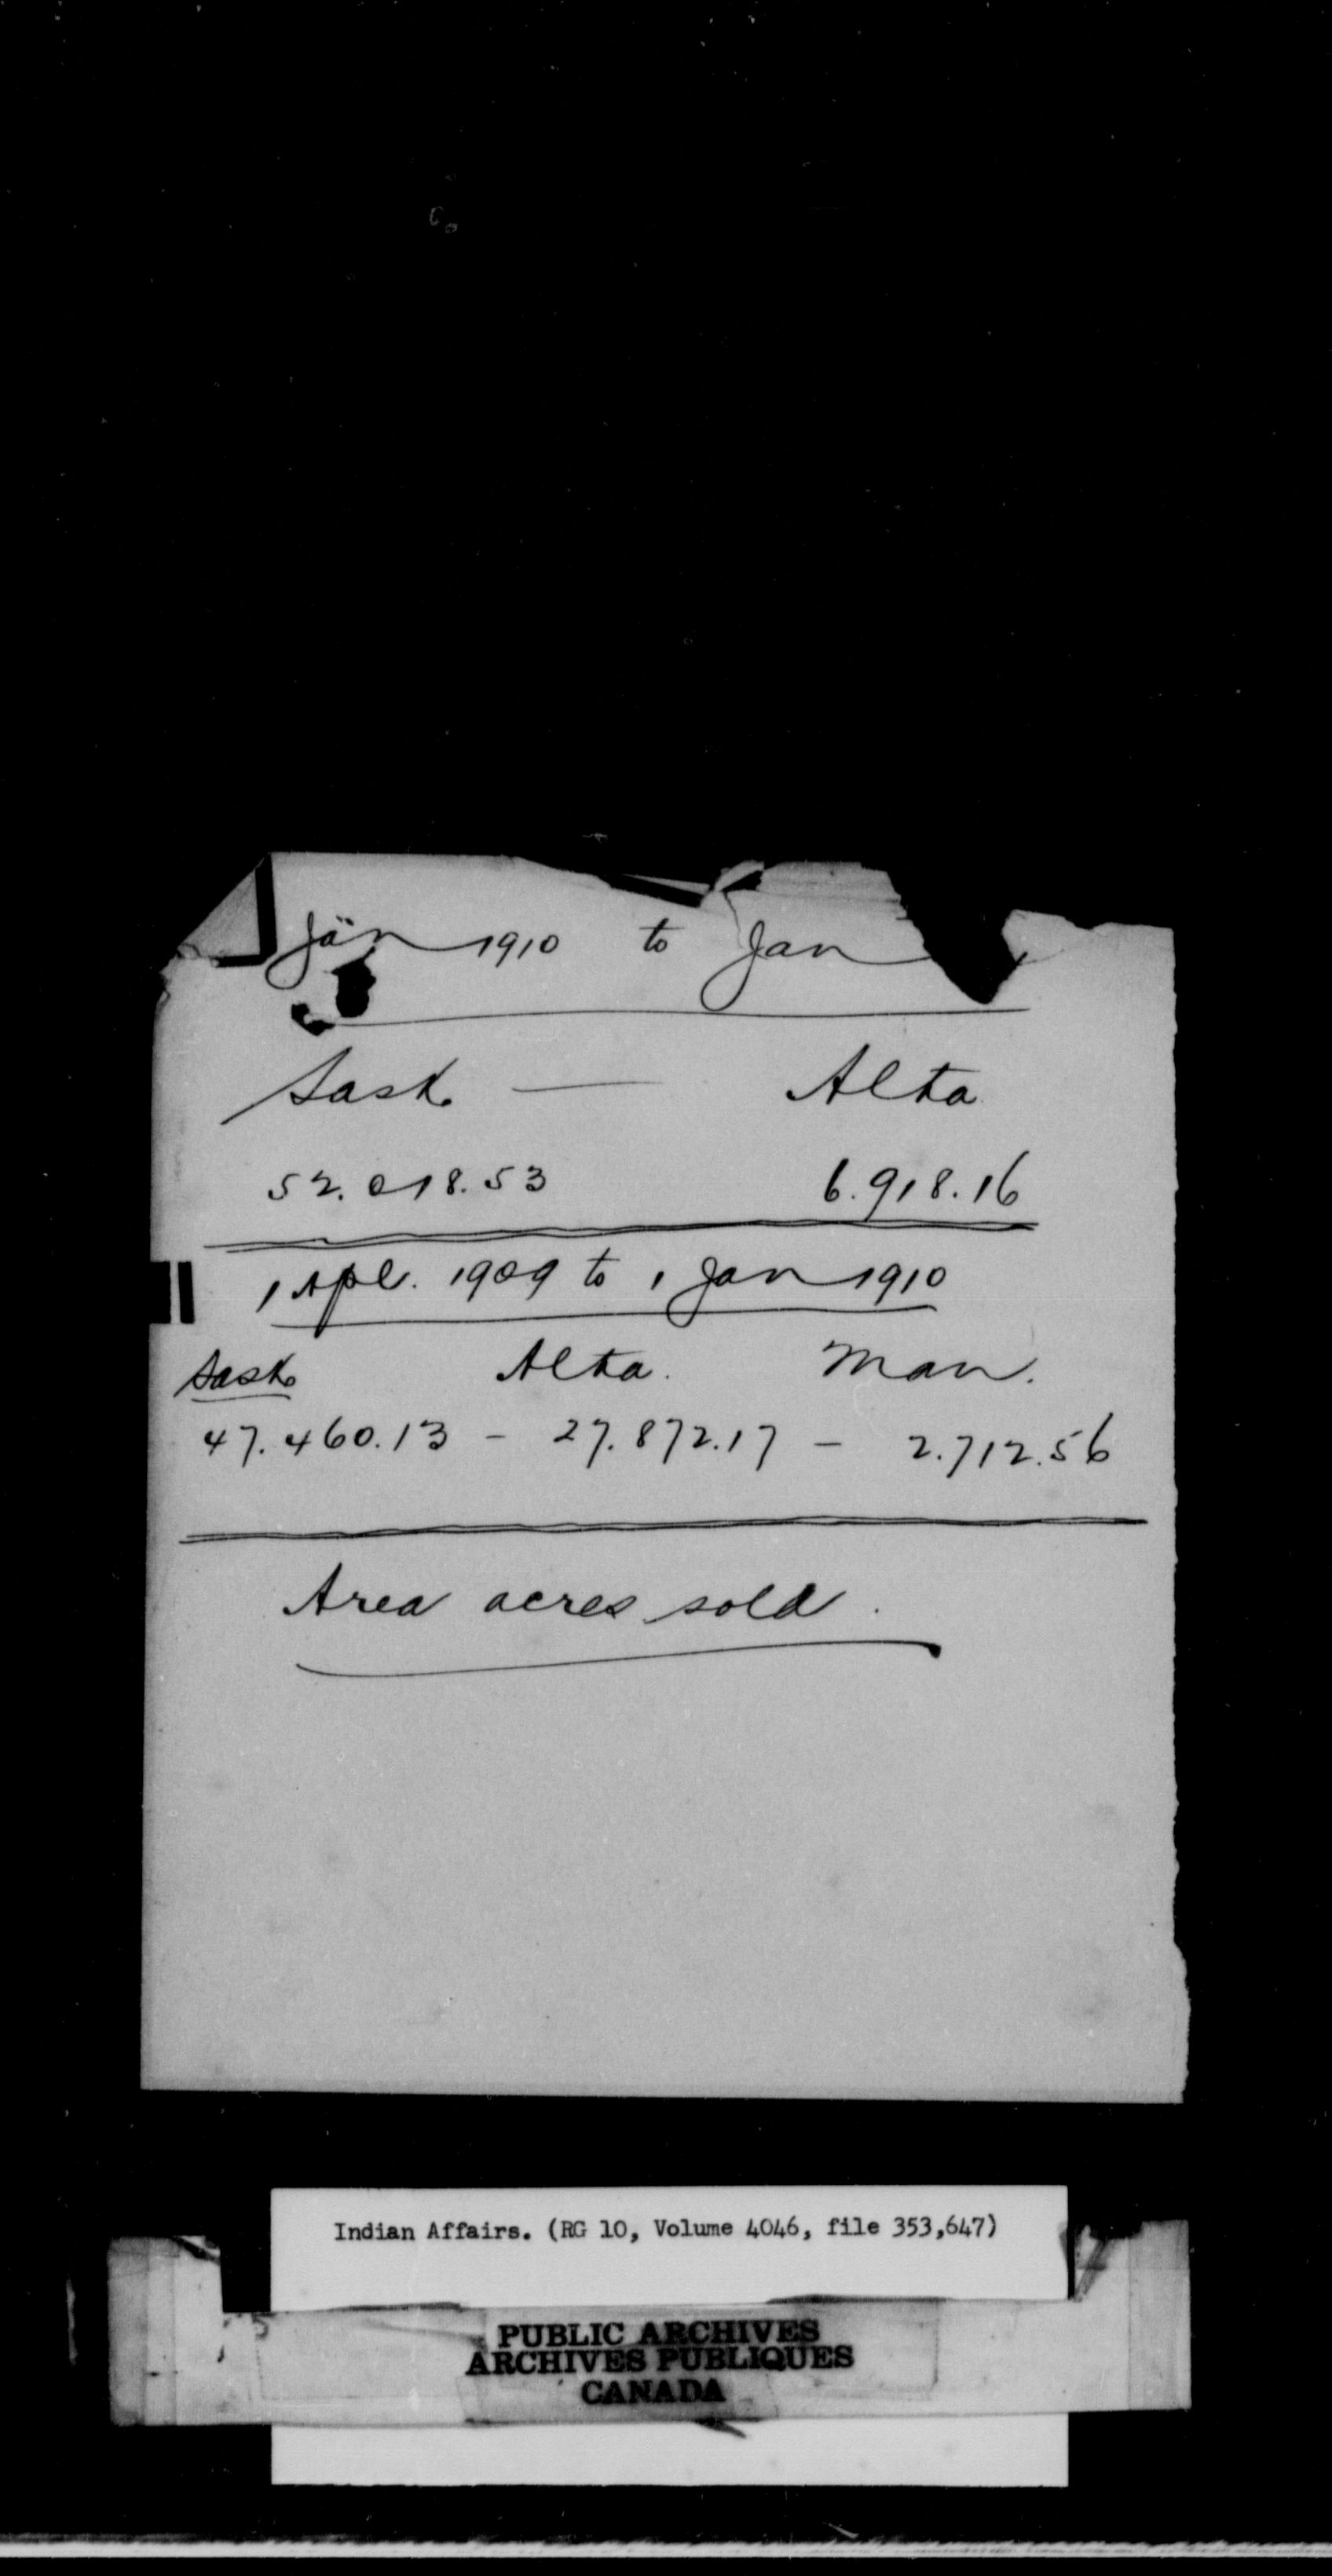 Jan 1910 to Jan
Sask. — Alta
52.018.53 6.918.16
1 Apl. 1909 to 1 Jan 1910
Sask. Alta. Man.
47.460.13 - 27.872.17 - 2.712.56
Area acres sold.
Indian Affairs. (RG 10, Volume 4046, file 353,647)
PUBLIC ARCHIVES
ARCHIVES PUBLIQUES
CANADA